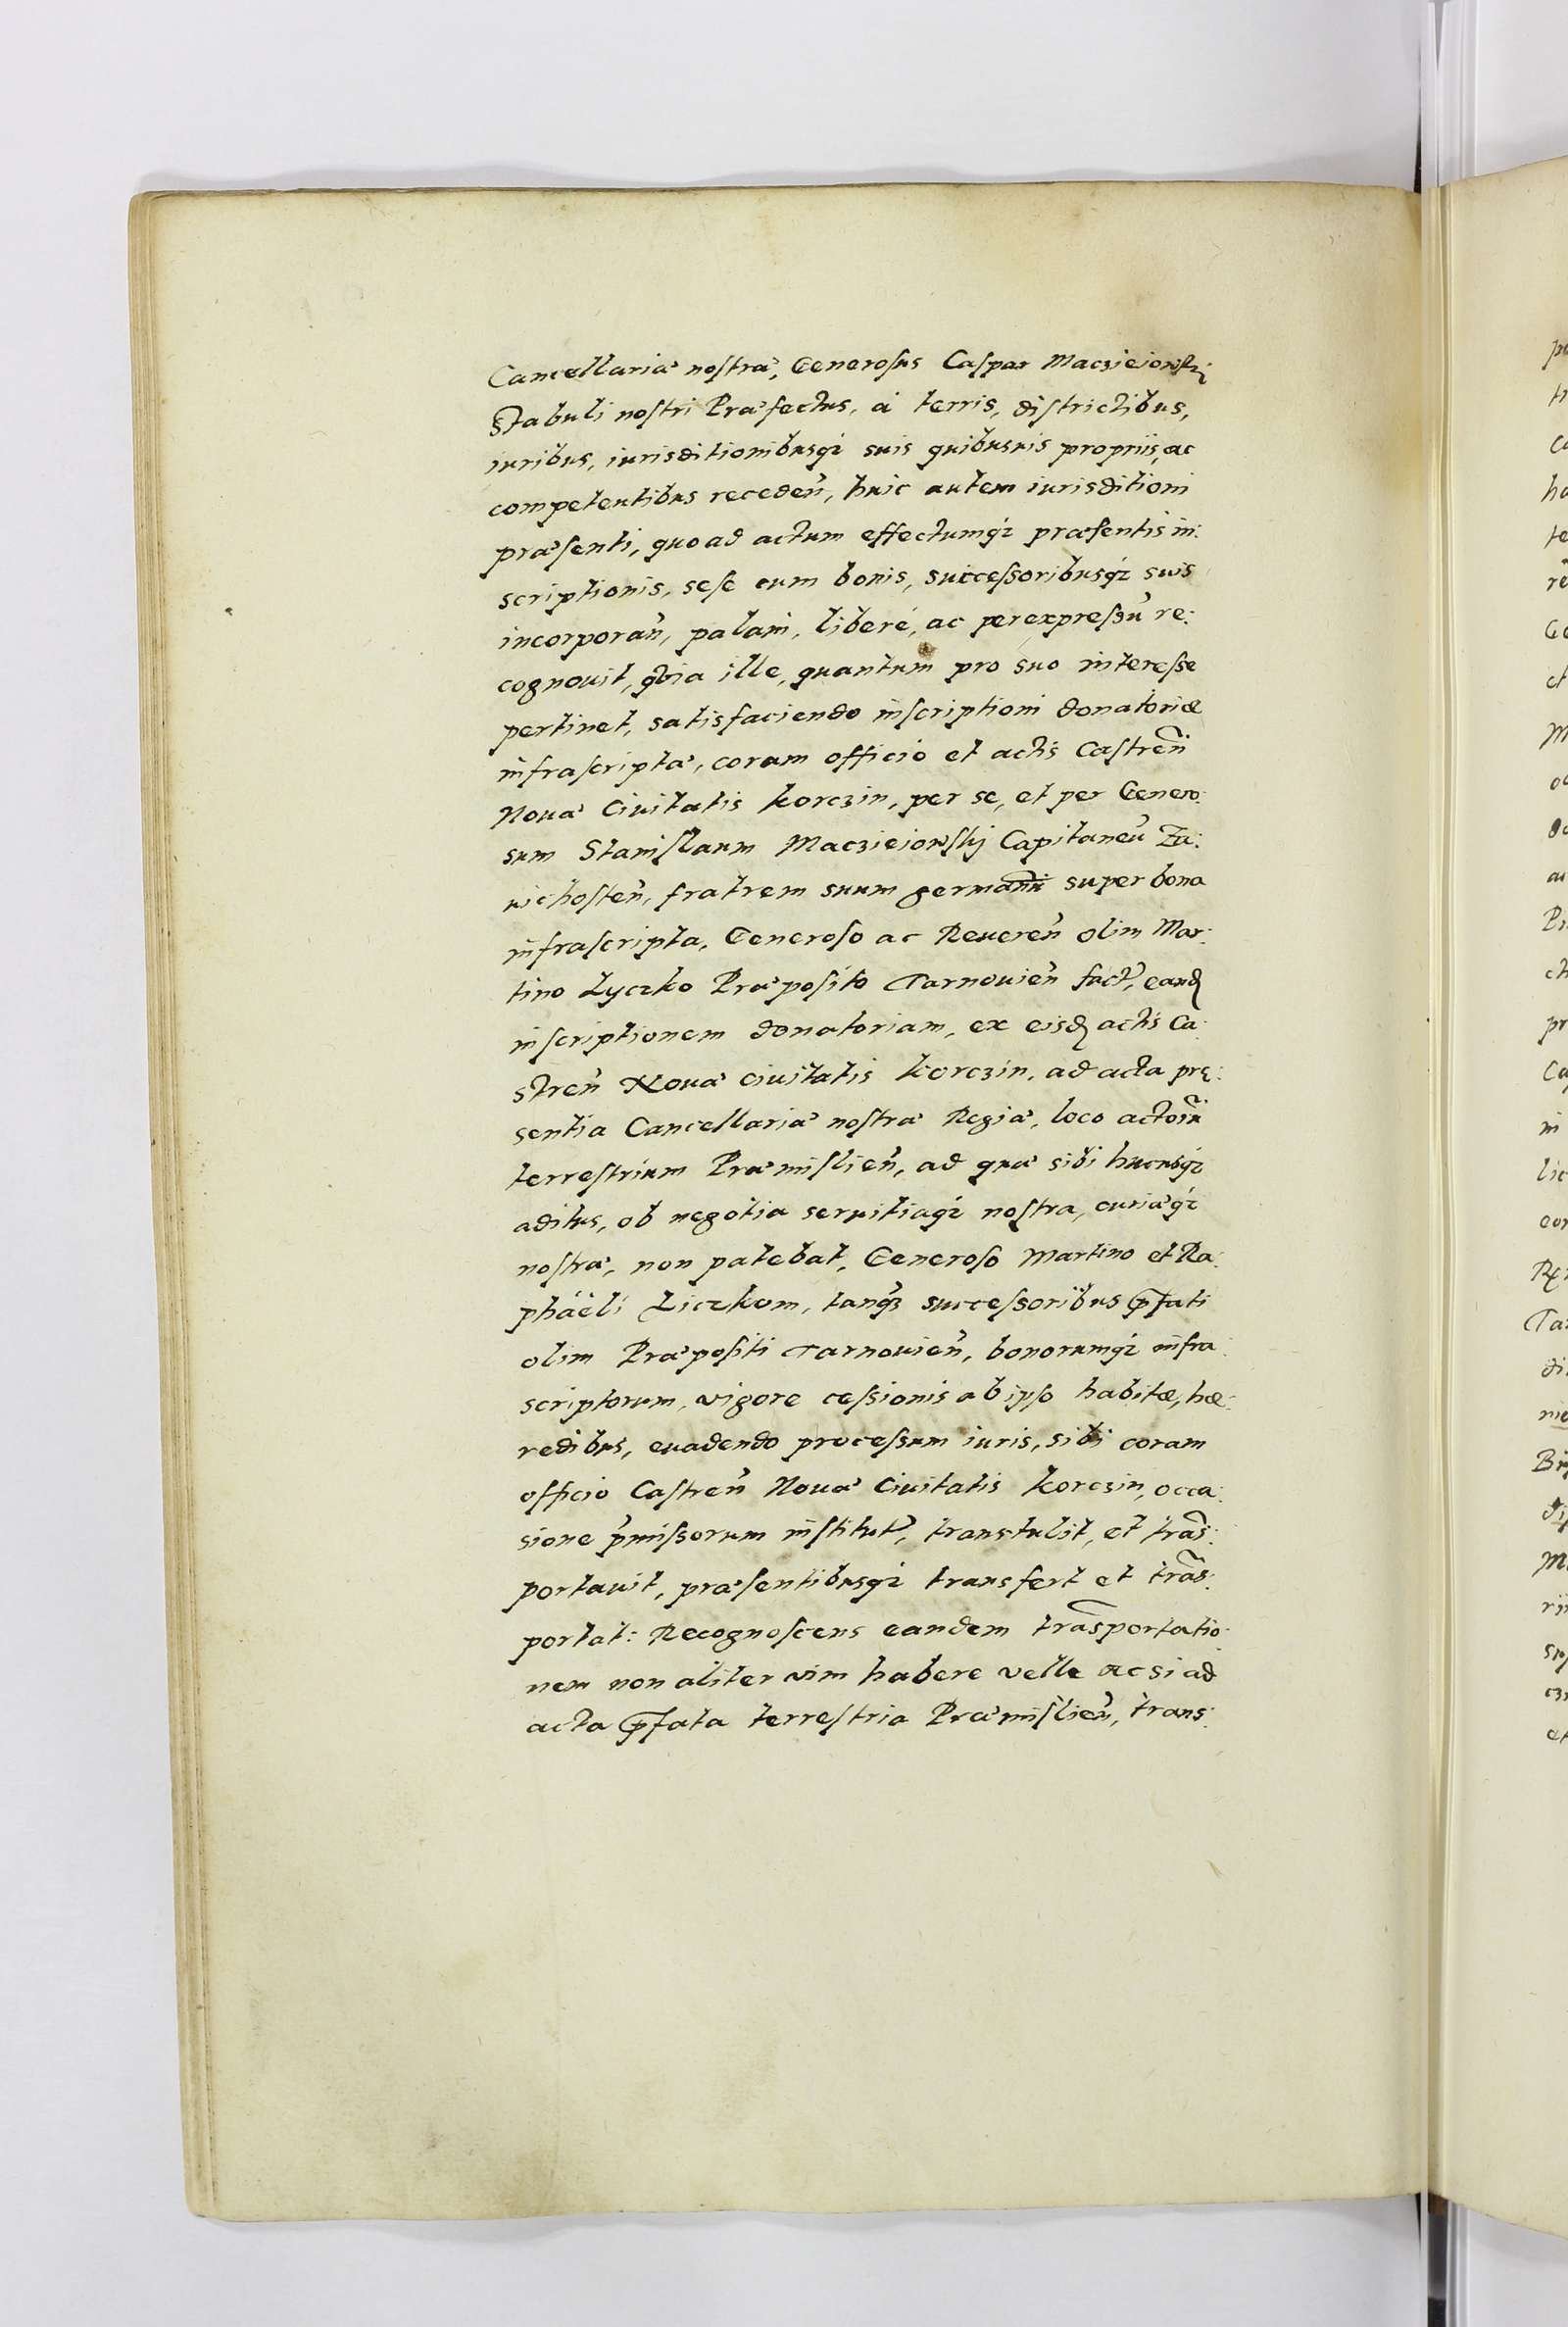 Cancellariæ nostræ, Generosus Caspar Maczieiowskj
Stabuli nostri Præfectus, á terris, districtibus,
iuribus, iurisditionibusq́; suis quibusuis propriis, ac
competentibus receden̄, huic autem iurisditioni
præsenti, quoad actum effectumq́; præsentis in:
scriptionis, sese cum bonis, successoribusq́; suis
incorporan̄, palam, liberé, ac per expressū re:
cognouit, quia ille, quantum pro suo interesse
pertinet, satisfaciendo inscriptioni donatoriæ
infrascriptæ, coram officio et actis Castren̄
Nouæ Ciuitatis Korczin, per se, et per Genero:
sum Stanislaum Maczieiowskj Capitaneū Za:
uichosten̄, fratrem suum germanū super bona
infrascripta, Generoso ac Reueren̄ olim Mar:
tino Lyczko Præposito Tarnouien̄ fact̄, eand̨
inscriptionem donatoriam, ex eisd̨ actis Ca:
stren̄ Nouæ Ciuitatis Korczin, ad acta prę:
sentia Cancellariæ nostræ Regiæ, loco actorū
terrestrium Præmislien̄, ad quæ sibi hucusq́;
aditus, ob negotia seruitiaq́; nostra, curiæq́;
nostræ, non patebat, Generoso Martino et Ra:
phäëli Liczkom, tanq̄ȝ successoribus p̄fati
olim Præpositi Tarnouien̄, bonorumq́; infra:
scriptorum, vigore cessionis ab ipso habitæ, hæ:
redibus, euadendo processum iuris, sibi coram
officio Castren̄ Nouæ Ciuitatis Korczin, occa:
sione p̄missorum institut̄, transtulit, et trās:
portauit, præsentibusq́; transfert et trās:
portat: Recognoscens eandem trāsportatio:
nem non aliter vim habere velle ac si ad
acta p̄fata terrestria Præmislien̄, trans: